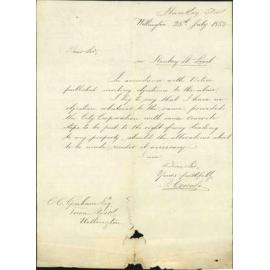 Wellington, 28th July 1882
Dear Sir,
In accordance with Notice
published inviting objections to the above,
I beg to say that I have no
objection whatever to the same, provided
the City Corporation will cause concrete
steps to be put to the right of way leading
to my property, should the alterations about
to be made, render it necessary.
I am
Dear Sir,
Yours faithfully,
Esq
Town Clerk
Wellington